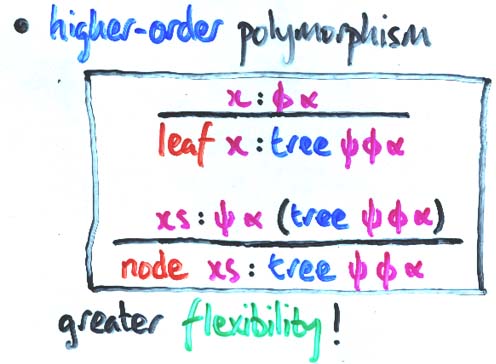 • higher-order polymorphism
x : φ α
leaf x : tree ψ φ α
xs : ψ α (tree ψ φ α)
node xs : tree ψ φ α
greater flexibility!